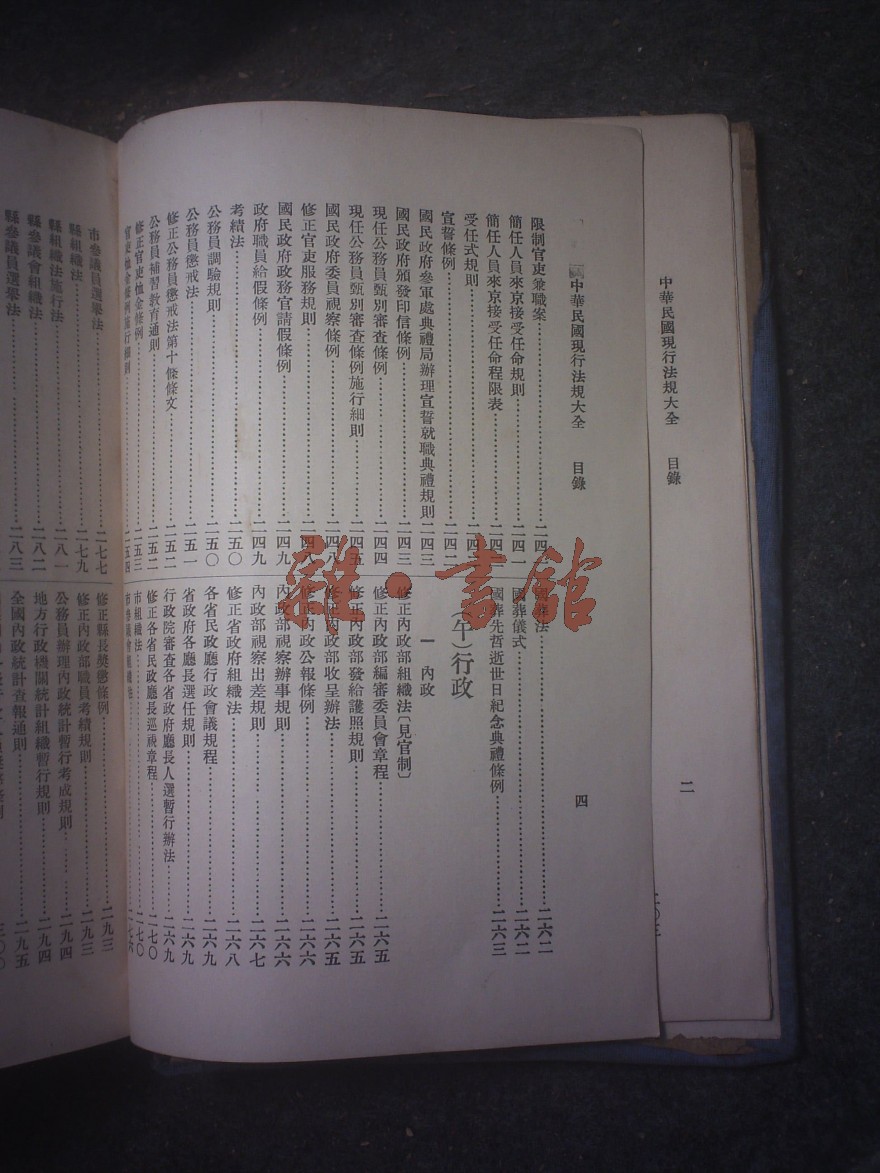 中華民國現行法規大全 目錄
二
中華民國現行法規大全 目錄
四
限制官吏兼職案
簡任人員來京接受任命規則 二四一
簡任人員來京接受任命程限表 二四
受任式規則 二四
宣誓條例 二四
國民政府參軍處典禮局辦理宣誓就職典禮規則 二四三
國民政府頒發印信條例 二四三
現任公務員甄別審查條例 二四四
現任公務員甄別審查條例施行細則 二四五
國民政府委員視察條例
修正官吏服務規則
國民政府政務官請假條例 二四九
政府職員給假條例 二四九
考績法 二五〇
公務員調驗規則 二五〇
公務員懲戒法 二五一
修正公務員懲戒法第十條條文 二五二
公務員補習教育通則 二五二
修正官吏恤金條例 二五三
二五四
國葬法 二六二
國葬儀式 二六二
國葬先哲逝世日紀念典禮條例 二六三
(午)行政
一 內政
修正內政部組織法〔見官制〕
修正內政部編審委員會章程 二六五
修正內政部發給護照規則
修正內政部收呈辦法 二六五
修正內政公報條例 二六六
內政部視察辦事規則 二六六
內政部視察出差規則 二六七
修正省政府組織法 二六八
各省民政廳行政會議規程 二六九
省政府各廳長選任規則 二六九
行政院審查各省政府廳長人選暫行辦法 二六九
修正各省民政廳長巡視章程 二七〇
市組織法 二七〇
二七六
市參議員選舉法 二七七
縣組織法 二七九
縣組織法施行法 二八一
縣參議會組織法 二八二
縣參議員選舉法 二八三
修正縣長獎懲條例 二九三
修正內政部職員考績規則 二九三
公務員辦理內政統計暫行考成規則 二九四
地方行政機關統計組織暫行規則 二九四
全國內政統計查報通則 二九五
三〇〇
雜·書館